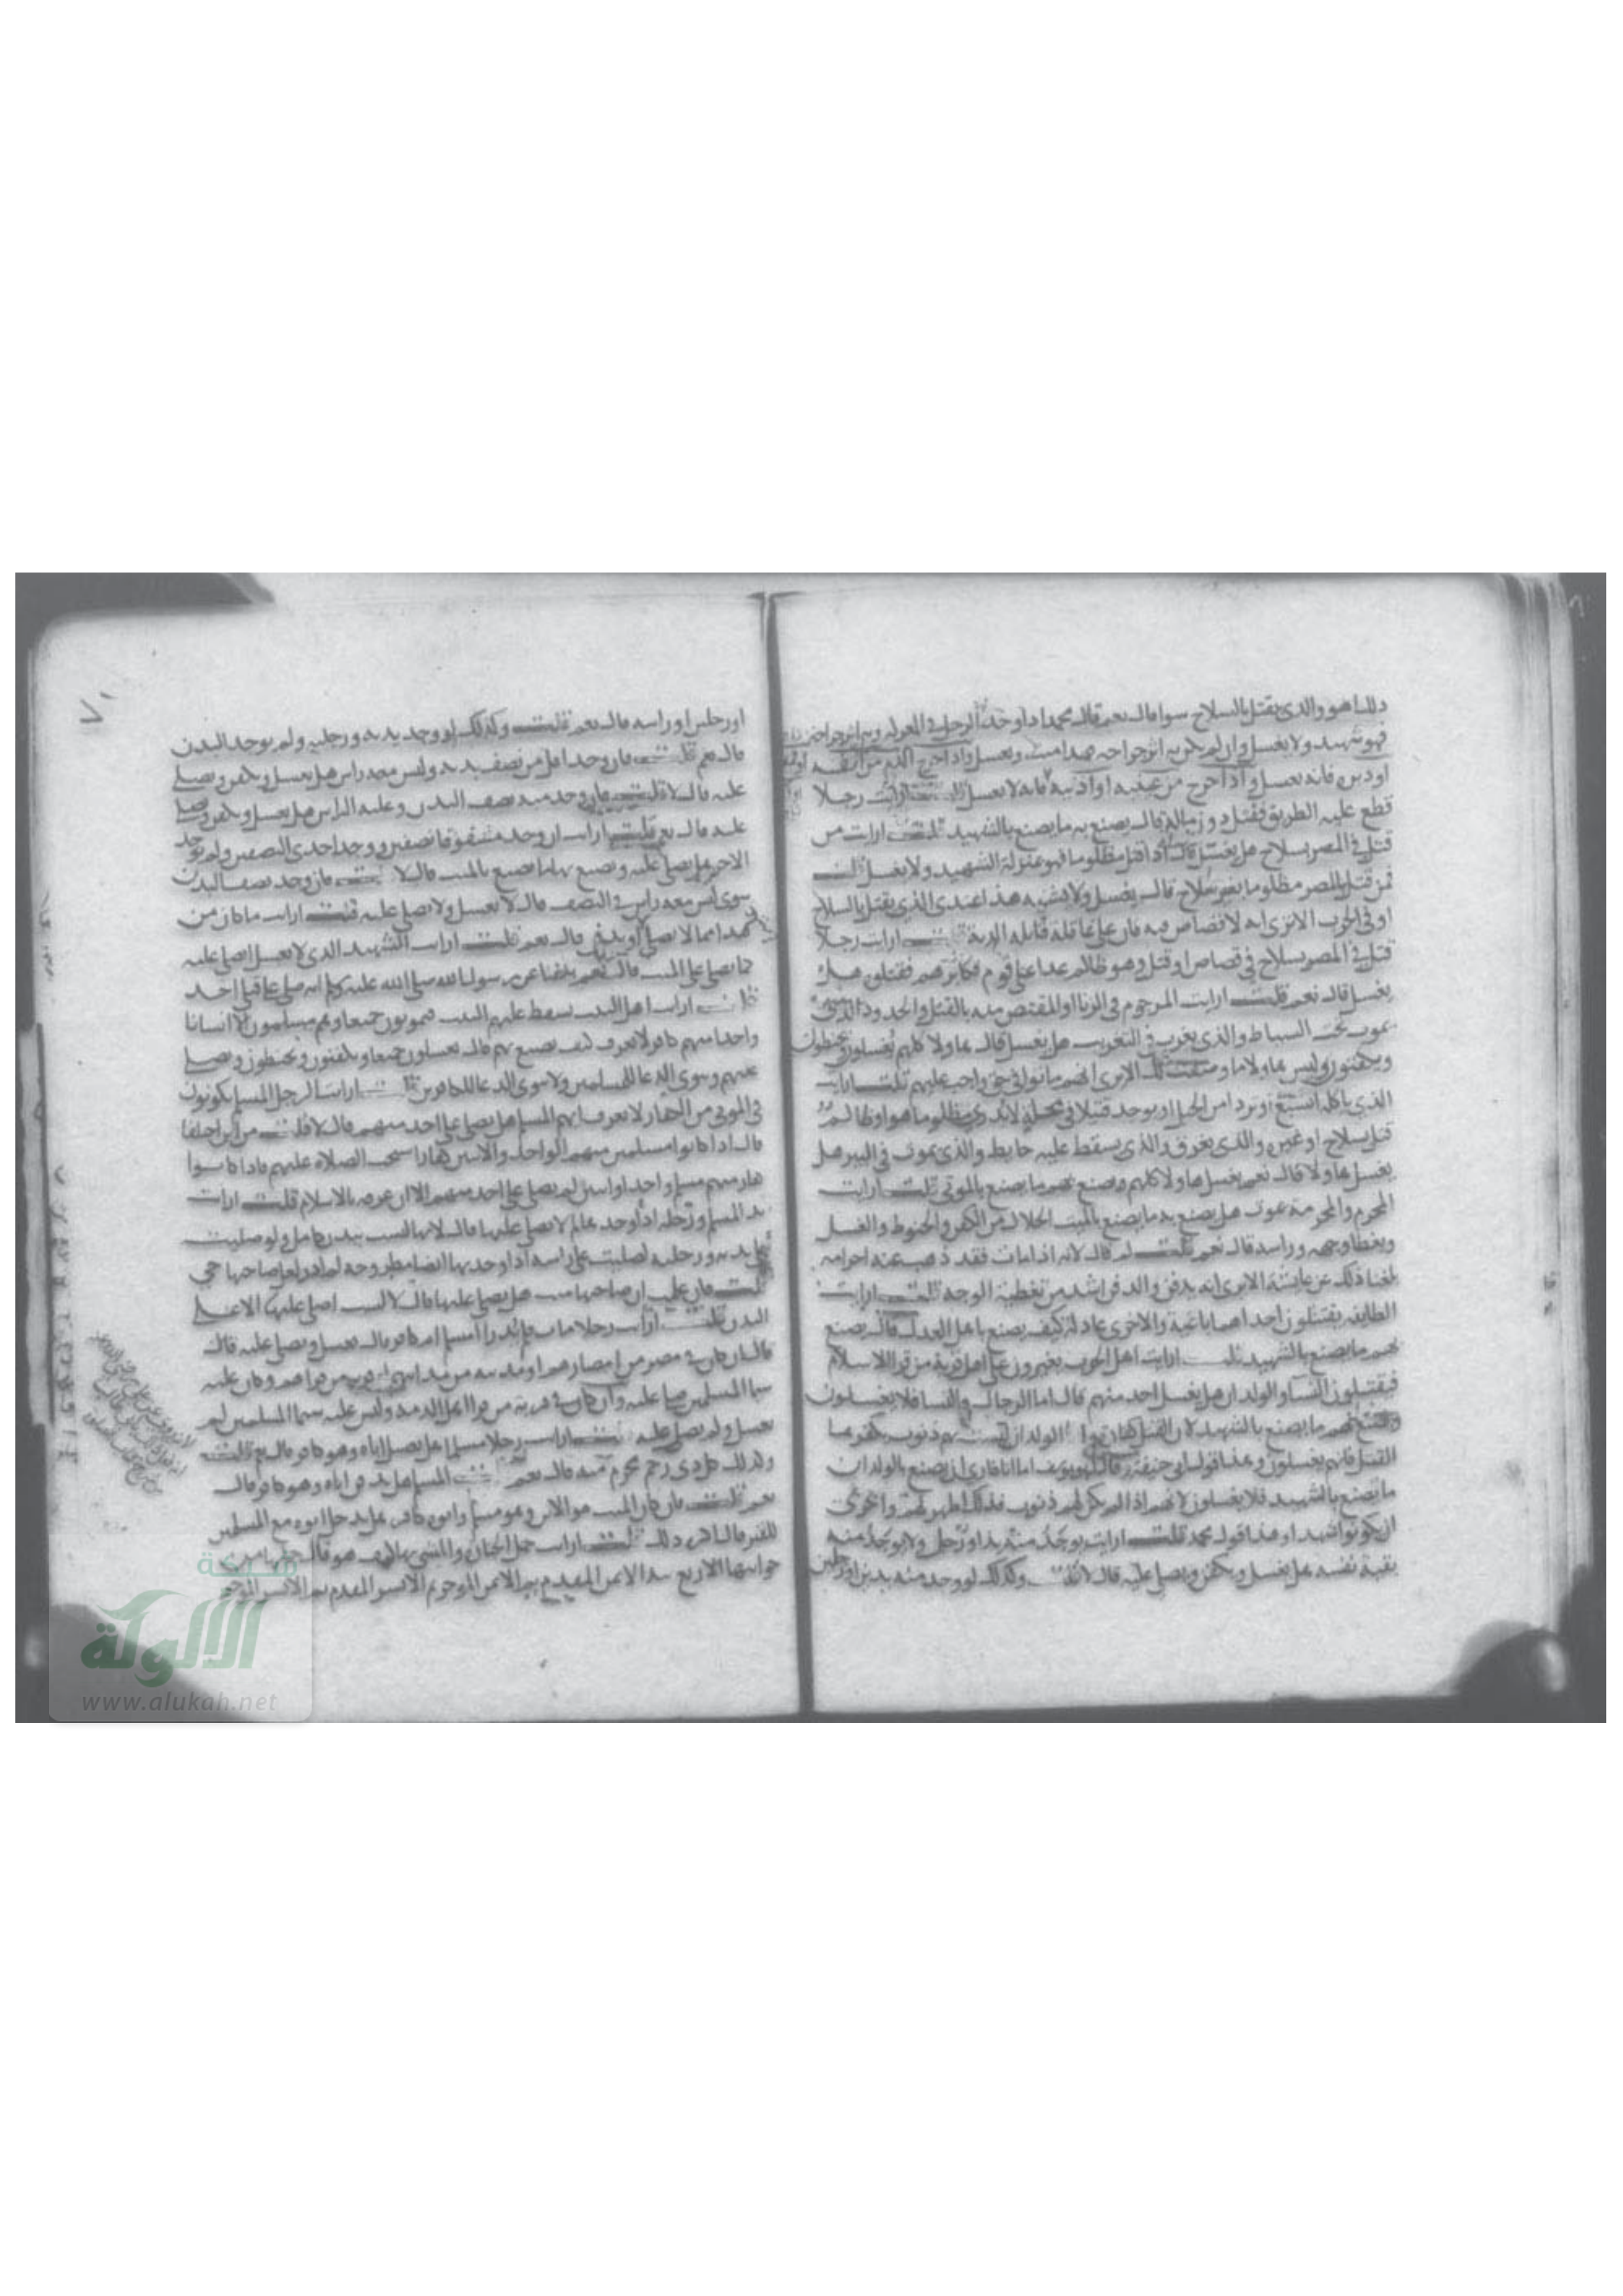 ذلك اهو والذى يقتل بالسلاح سوا قال نعم قال محمد اذا وجد الرجل فى المعركه وبه اثر جراحه
فهو شهيد ولا يغسل وان لم يكن به اثر جراحه فهذا ميت ويغسل واذا خرج الدم من انفه
او دبره فانه يغسل واذا خرج من عينيه او اذنيه فانه لا يغسل ارايت رجلا
قطع عليه الطريق فقتل دون ماله قال يصنع به ما يصنع بالشهيد قلت ارايت من
قتل فى المصر بسلاح هل يغسل قال اذا قتل مظلوما فهو بمنزلة الشهيد ولا يغسل قلت
فمن قتل بالمصر مظلوما بغير سلاح قال يغسل ولا يشبه هذا عندى الذى يقتل بالسلاح
او فى الحرب الا ترى انه لا قصاص فيه فان على عاقلة قاتله الدية قلت ارايت رجلا
قتل فى المصر بسلاح فى قصاص او قتل وهو ظالم عدا على قوم فكابرهم فقتلوه هل
يغسل قال نعم قلت ارايت المرجوم فى الزنا او المقتص منه بالقتل والحدود الذى
يموت تحت السياط والذى يعزر فى التعزير هل يغسل قال هاولا كلهم يغسلون ويحنطون
ويكفنون وليس هاولا الا ترى انهم ماتوا فى حق واجب عليهم قلت ارايت
الذى ياكله السبع او تردا من الجبل او يوجد قتيلا فى محلة لا يدرى مظلوما هو او ظالم
قتل بسلاح او غيره والذى يغرق والذى يسقط عليه حايط والذى يموت فى البير هل
يغسل هاولا قال نعم يغسل هاولا كلهم ويصنع بهم ما يصنع بالموتى قلت ارايت
المحرم والمحرمة يموت هل يصنع به ما يصنع بالميت الحلال من الكفن والحنوط والغسل
ويغطا وجهه وراسه قال نعم قلت لم قال لانه اذا مات فقد ذهب عنه احرامه
بلغنا ذلك عن عايشة الا ترى انه يدفن والدفن اشد من تغطية الوجه قلت ارايت
الطايفه يقتتلون احداهما باغية والاخرى عادلة كيف يصنع باهل العدل قال يصنع
بهم ما يصنع بالشهيد قلت ارايت اهل الحرب يغيرون على اهل قرية من قرا الاسلام
فيقتلون النسا والولدان هل يغسل احد منهم قال اما الرجال والنسا فلا يغسلون
ويصنع بهم ما يصنع بالشهيد لان القتل كفارة واما الولدان ليست لهم ذنوب يكفرها
القتل فانهم يغسلون وهذا قول ابى حنيفة وقال ابو يوسف اما انا فارى ان يصنع بالولدان
ما يصنع بالشهيد فلا يغسلون لانهم اذا لم يكن لهم ذنوب فذلك اطهر لهم واحرى
ان يكونوا شهدا وهذا قول محمد قلت ارايت يوجد منه يد او رجل ولا يوجد منه
بقية نفسه هل يغسل ويكفن ويصلى عليه قال لا قلت وكذلك لو وجد منه يدين او رجلين
او رجلين او راسه قال نعم قلت وكذلك لو وجد يديه ورجليه ولم يوجد البدن
قال نعم قلت فان وجد اقل من نصف بدنه وليس معه راس هل يغسل ويكفن ويصلى
عليه قال لا قلت فان وجد منه نصف البدن وعليه الراس هل يغسل ويكفن ويصلى
عليه قال نعم قلت ارايت ان وجد مشقوقا نصفين ووجد احدى النصفين ولم يوجد
الاخر هل يصلى عليه ويصنع بهذا ما يصنع بالميت قال لا قلت فان وجد نصف البدن
سوى ليس معه راس فى النصف قال لا يغسل ولا يصلى عليه قلت ارايت ما كان من
هذا مما لا يصلى عليه او يدفن قال نعم قلت ارايت الشهيد الذى لا يغسل ايصلى عليه
كما يصلى على الميت قال نعم بلغنا عن رسول الله صلى الله عليه وسلم انه صلى على قتلى احد
قلت ارايت اهل البيت يسقط عليهم البيت فيموتون جميعا وهم مسلمون الا انسانا
واحدا منهم كافر لا يعرف كيف يصنع بهم قال يغسلون جميعا ويكفنون ويحنطون ويصلى
عليهم وينوى الدعا للمسلمين ولا ينوى الدعا للكافرين قلت ارايت الرجل المسلم يكونون
فى الموتى من الكفار لا يعرف ايهم المسلم هل يصلى على احد منهم قال لا قلت من اين اختلفا
قال اذا كانوا مسلمين فيهم الواحد والاثنين كفارا استحب الصلاة عليهم فاذا كانوا
كفار فيهم مسلم واحد او اثنين لم يصلى على احد منهم الا ان عرفه بالاسلام قلت ارايت
يد المسلم ورجله اذا وجد لم لا يصلى عليها قال لانها ليست ببدن كامل ولو صليت
على يده ورجليه لصليت على راسه اذا وجد ايضا مطروحه لم ادر لعل صاحبها حى
قلت فان علمت ان صاحبها ميت هل يصلى عليها قال لا لست اصلى عليها الا على
البدن قلت ارايت رجلا مات فلم يدرا امسلم ام كافر قال يغسل ويصلى عليه قال
قال ان كان فى مصر من امصارهم او مدينه من مداينهم او قريه من قراهم وكان عليه
سيما المسلمين صلى عليه وان كان فى قرية من قرا اهل الذمه وليس عليه سيما المسلمين لم
يغسل ولم يصلى عليه قلت ارايت رجلا مسلما هل يغسل اباه وهو كافر قال نعم قلت
وكذلك كل ذى رحم محرم منه قال نعم قلت المسلم هل يدفن اباه وهو كافر قال
نعم قلت فان كان الميت هو الابن وهو مسلم وابوه كافر هل يدخل ابوه مع المسلمين
القبر قال اكره ذلك قلت ارايت حمل الجنازه والمشى بها كيف هو قال
جوانبها الاربع يبدا الايمن المقدم ثم الايمن الموخر ثم الايسر المقدم ثم الايسر الموخر
شبكة
الألوكة
www.alukah.net